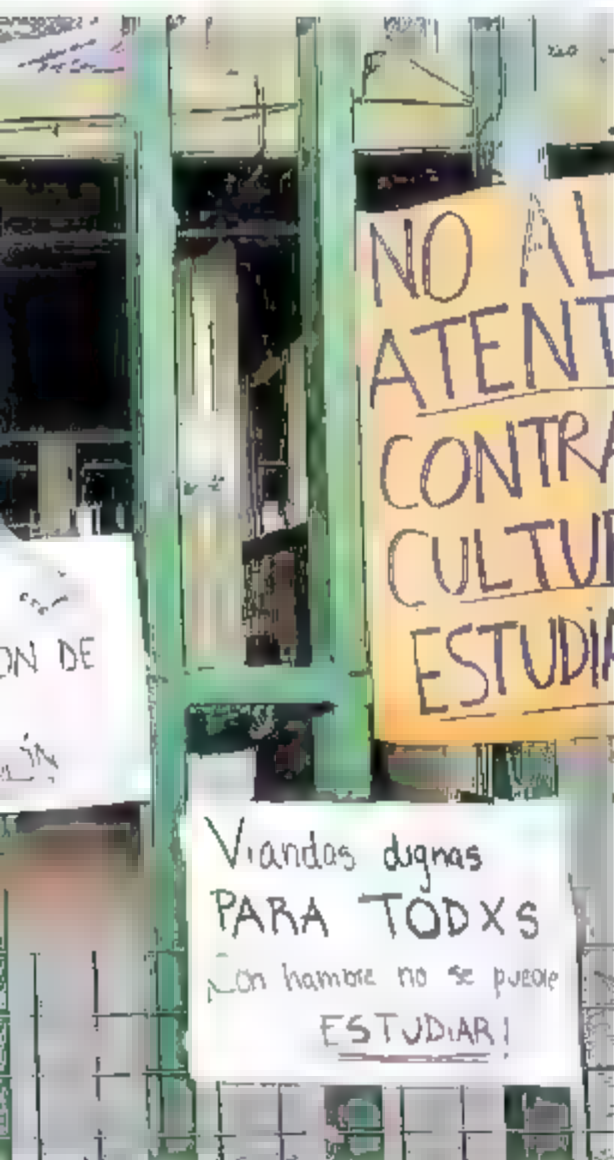 NO AL
ATENT
CONTRA
CULTUR
ESTUDIA
ON DE
Viandas dignas
PARA TODXS
Con hambre no se puede
ESTUDIAR!